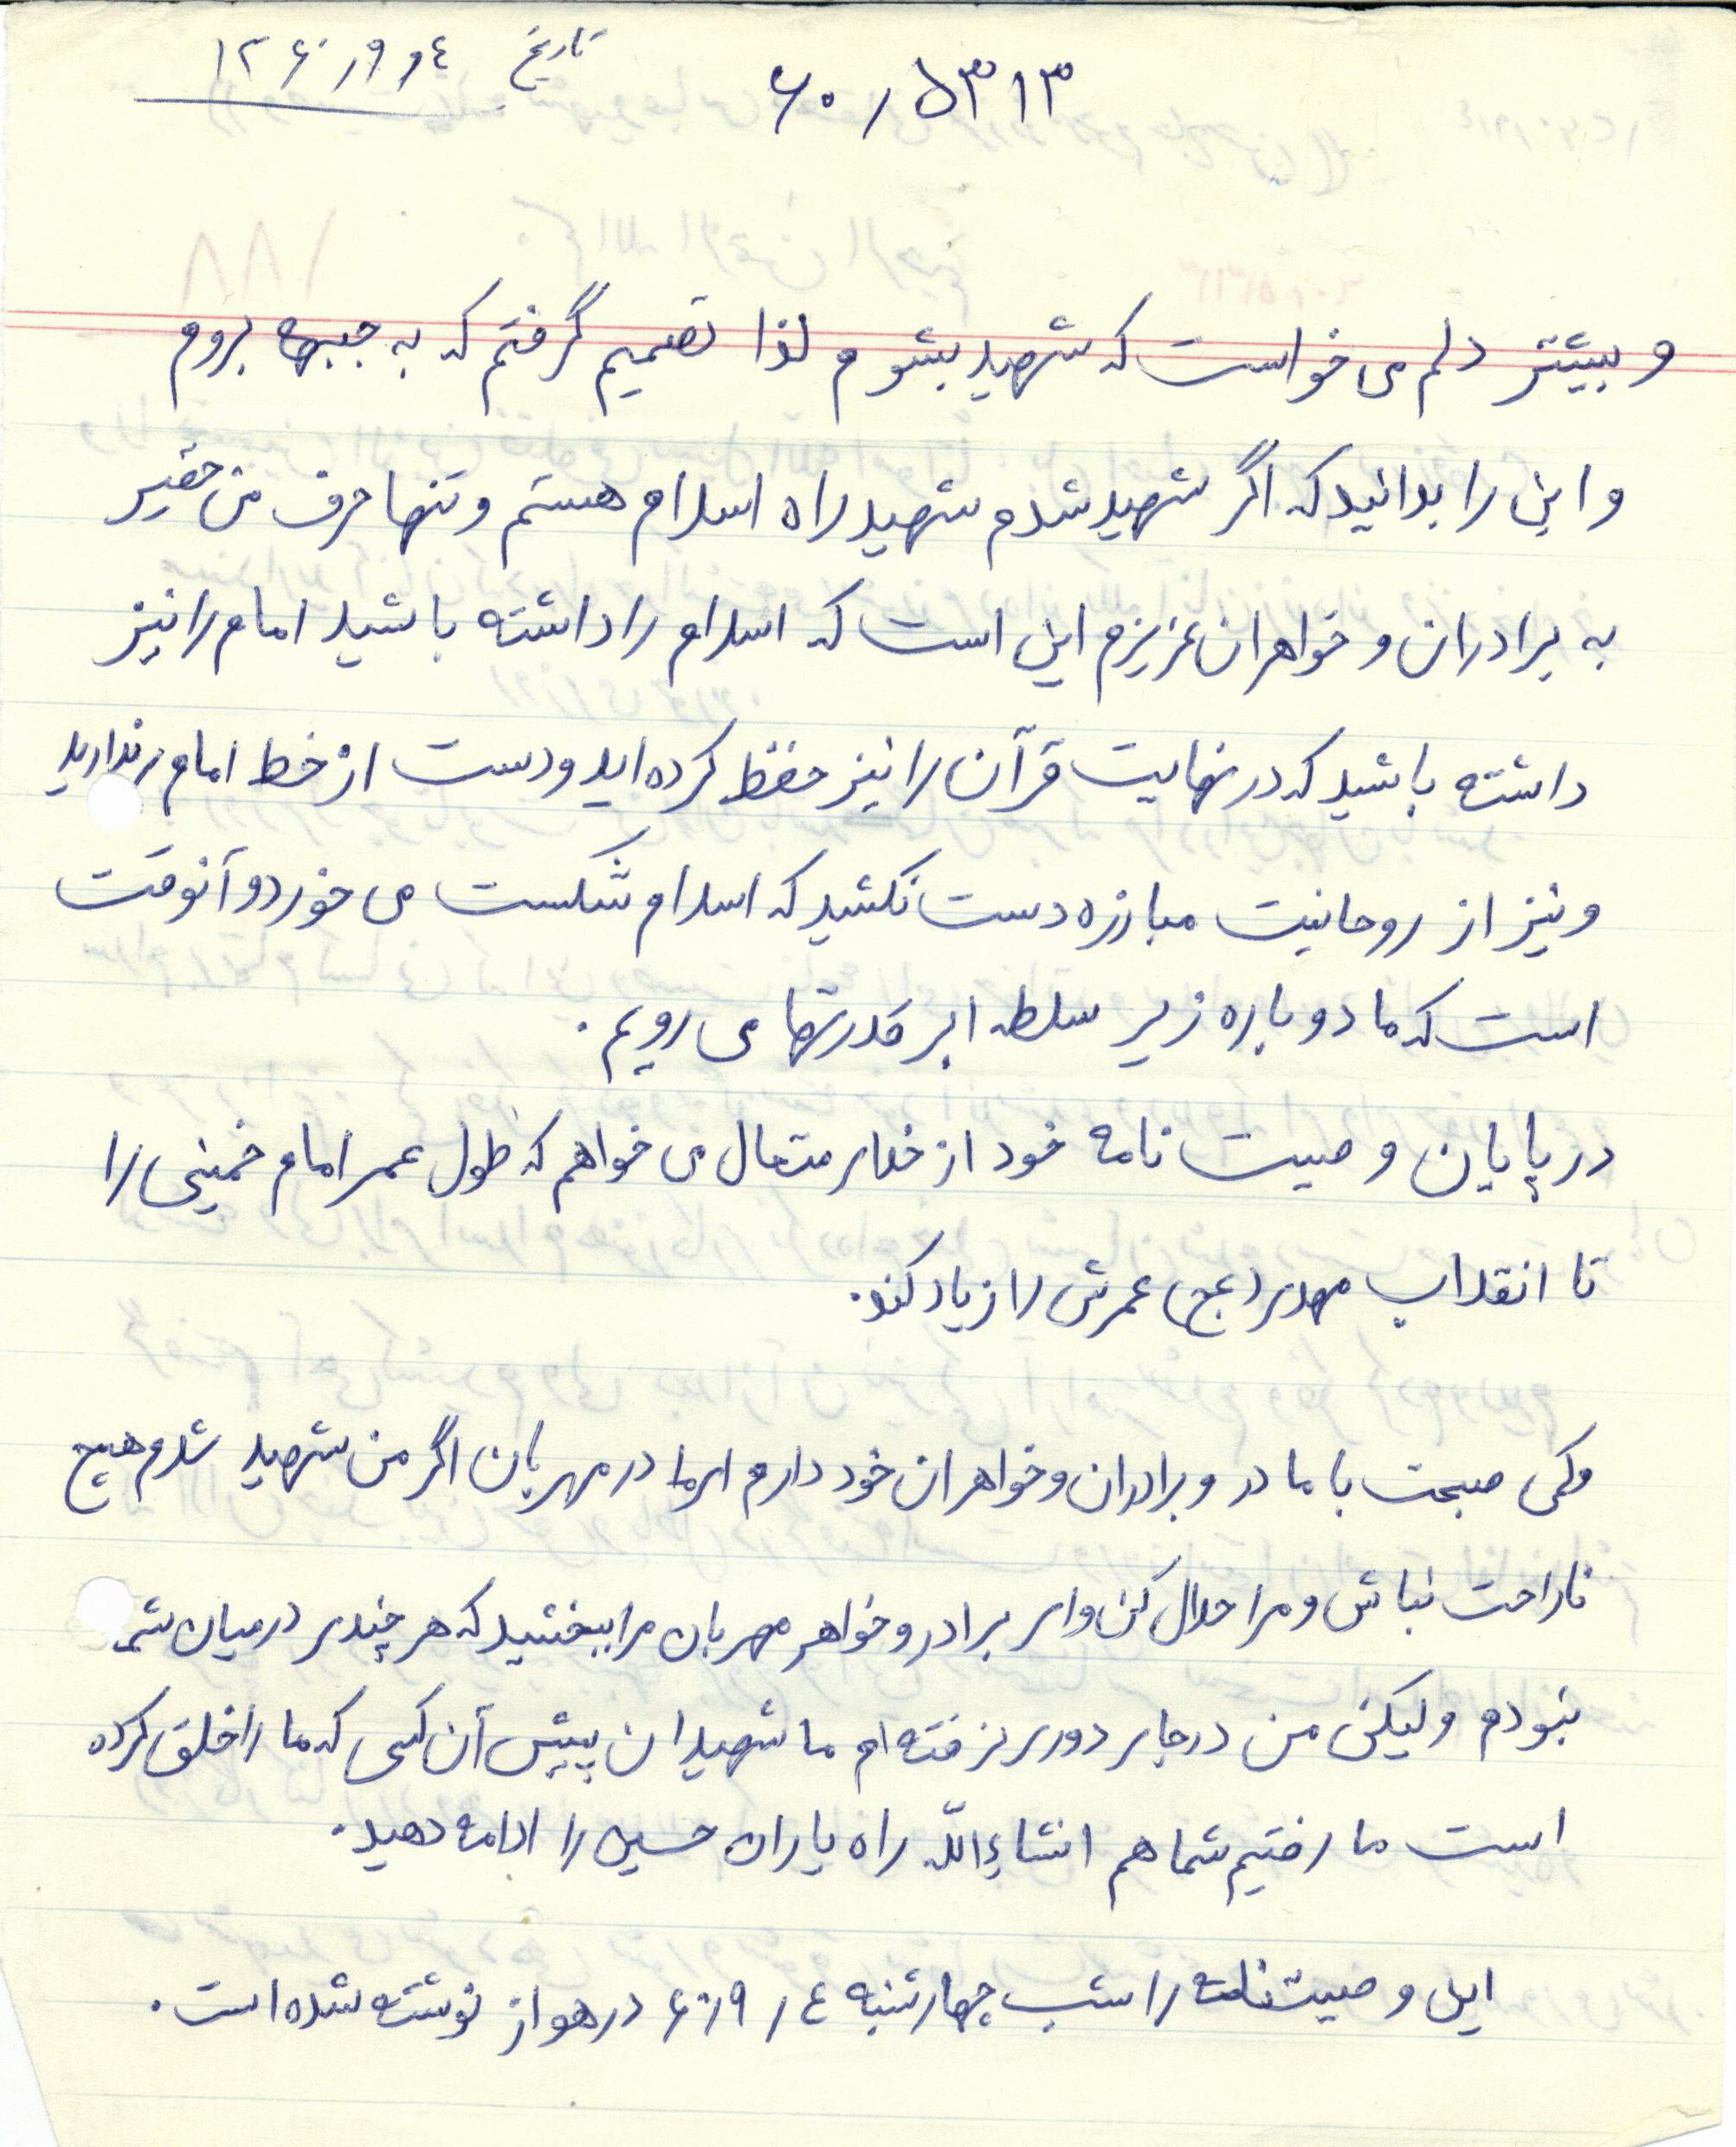 تاریخ ۱۳۶۰/۹/٤
۶۰/۵۳۱۳
و بیشتر دلم می خواست که شهید بشوم لذا تصمیم گرفتم که به جبهه بروم
و این را بدانید که اگر شهید شدم شهید راه اسلام هستم و تنها حرف من حقیر
به برادران و خواهران عزیزم این است که اسلام را داشته باشید امام را نیز
داشته باشید که در نهایت قرآن را نیز حفظ کرده اید و دست از خط امام برندارید
و نیز از روحانیت مبارزه دست نکشید که اسلام شکست می خورد و آنوقت
است که ما دوباره زیر سلطه ابرقدرتها می رویم.
در پایان وصیت نامه خود از خدای متعال می خواهم که طول عمر امام خمینی را
تا انقلاب مهدی (عج) عمرش را زیاد کند.
و کمی صبحت با مادر و برادران و خواهران خود دارم ای مادر مهربان اگر من شهید شدم هیچ
ناراحت نباش و مرا حلال کن و ای برادر و خواهر مهربان مرا ببخشید که هر چندی در میان شما
نبودم ولیکن من در جای دوری نرفته ام ما شهیدان پیش آن کسی که ما را خلق کرده
است ما رفتیم شما هم انشاءالله راه یاران حسین را ادامه دهید.
این وصیت نامه را شب چهارشنبه ۶۰/۹/٤ در هواز نوشته شده است.